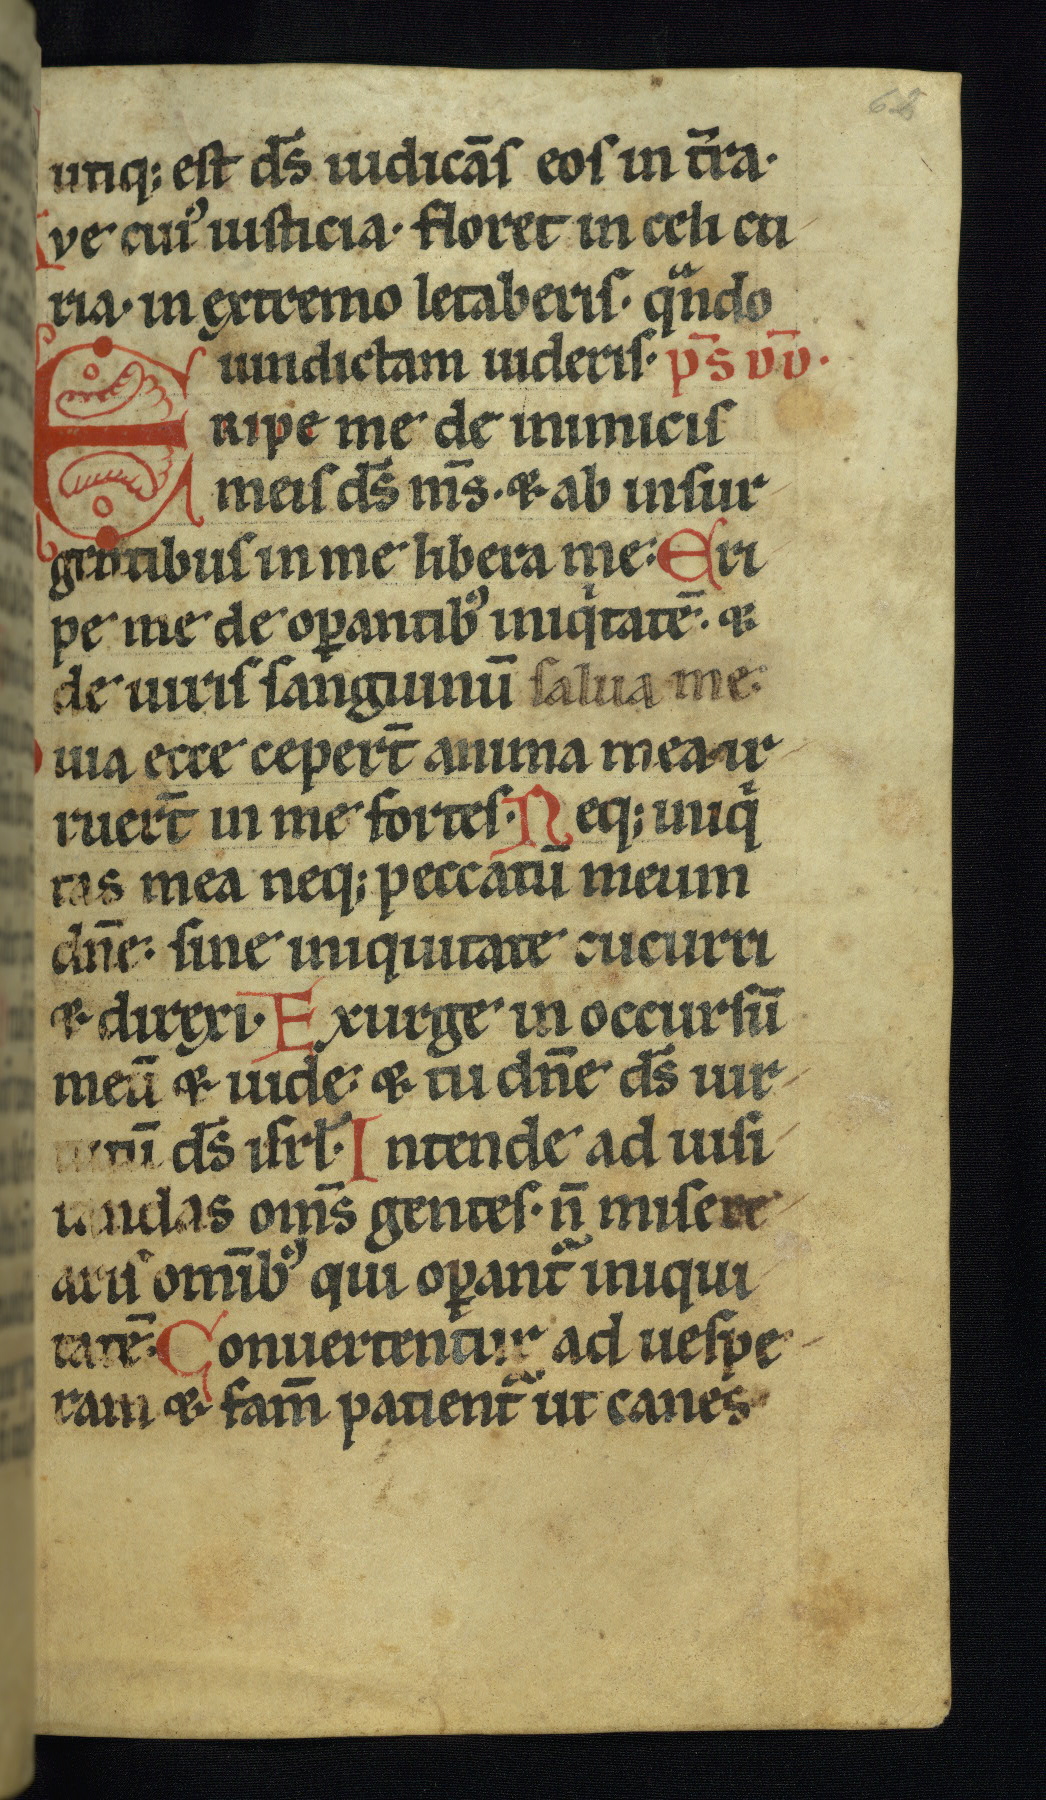 62
utiq; est ds̄ iudicās eos in t̄ra·
Ave cui᷒ iusticia· floret in celi cu
ria· in extremo letaberis· qͣndo
uindictam uideris· ps̄ dd̄·
ERipe me de inimicis
meis ds̄ ms̄· & ab insur
gentibus in me libera me: Eri
pe me de oꝑantib᷒ iniqͥtatē· &
de uiris sanguinū salua me:
Quia ecce ceper̄t anima mea· ir
ruer̄t in me fortes· Neq; iniqͥ
tas mea neq; peccatū meum
dn̄e: sine iniquitate cucurri
& direxi· Exurge in occursū
meū & uide: & tu dn̄e ds̄ uir
tutū ds̄ isrl̄· Intende ad uisi
tandas oms̄ gentes· n̄ misere
aris omib᷒ qui oꝑant᷑ iniqui
tatē: Conuertentur ad uespe
ram & famē patient᷑ ut canes